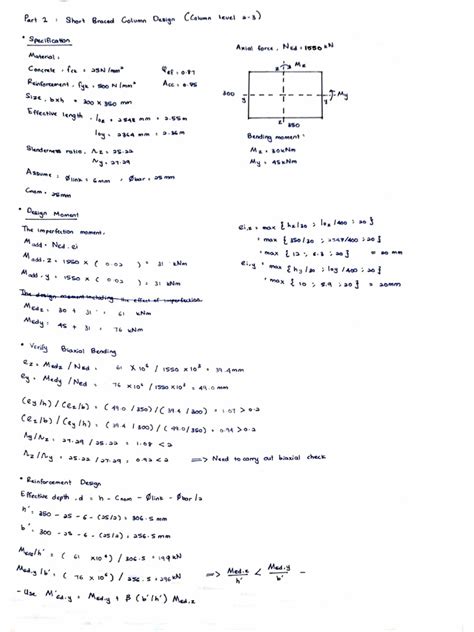 Part 2 : Short Braced Column Design (Column level 2-3)
* Specification
Axial force, Ned = 1550 kN
Material:
Concrete, fck = 25N/mm²
φef = 0.87
Reinforcement, fyk = 500 N/mm²
Acc = 0.85
Size, bxh = 300 x 350 mm
Effective length - loz = 2548 mm = 2.55m
loy = 2364 mm = 2.36m
Slenderness ratio, λz = 25.22
λy = 27.29
Assume : Ølink = 6mm, Øbar = 25mm
Cnom = 25mm
Mz
300
y
y
My
z
350
Bending moment:
Mz = 30kNm
My = 45kNm
* Design Moment
The imperfection moment.
Madd = Ned . ei
Madd.z = 1550 x ( 0.02 ) = 31 kNm
Madd.y = 1550 x ( 0.02 ) = 31 kNm
The design moment including the effect of imperfection
Medz = 30 + 31 = 61 kNm
Medy = 45 + 31 = 76 kNm
ei,z = max { hz/30 ; loz/400 ; 20 }
= max { 350/30 ; 2548/400 ; 20 }
= max { 12 ; 6.3 ; 20 } = 20 mm
ei,y = max { hy/30 ; loy/400 ; 20 }
= max { 10 ; 5.9 ; 20 } = 20mm
* Verify Biaxial Bending
ez = Medz / Ned = 61 x 10⁶ / 1550 x 10³ = 39.4mm
ey = Medy / Ned = 76 x 10⁶ / 1550 x 10³ = 49.0 mm
(ey/h) / (ez/b) = (49.0 / 350) / (39.4 / 300) = 1.07 > 0.2
(ez/b) / (ey/h) = (39.4 / 300) / (49.0 / 350) = 0.94 > 0.2
λy/λz = 27.29 / 25.22 = 1.08 < 2
λz/λy = 25.22 / 27.29 = 0.92 < 2 => Need to carry out biaxial check
* Reinforcement Design
Effective depth, d = h - Cnom - Ølink - Øbar/2
h' = 350 - 25 - 6 - (25/2) = 306.5 mm
b' = 300 - 25 - 6 - (25/2) = 256.5 mm
Medz/h' = ( 61 x10⁶ ) / 306.5 = 199 kN
Med.y/b' = ( 76 x 10⁶ ) / 256.5 = 296 kN => Med.z/h' < Med.y/b' -
- Use M'ed.y = Med.y + β (b'/h') Med.z